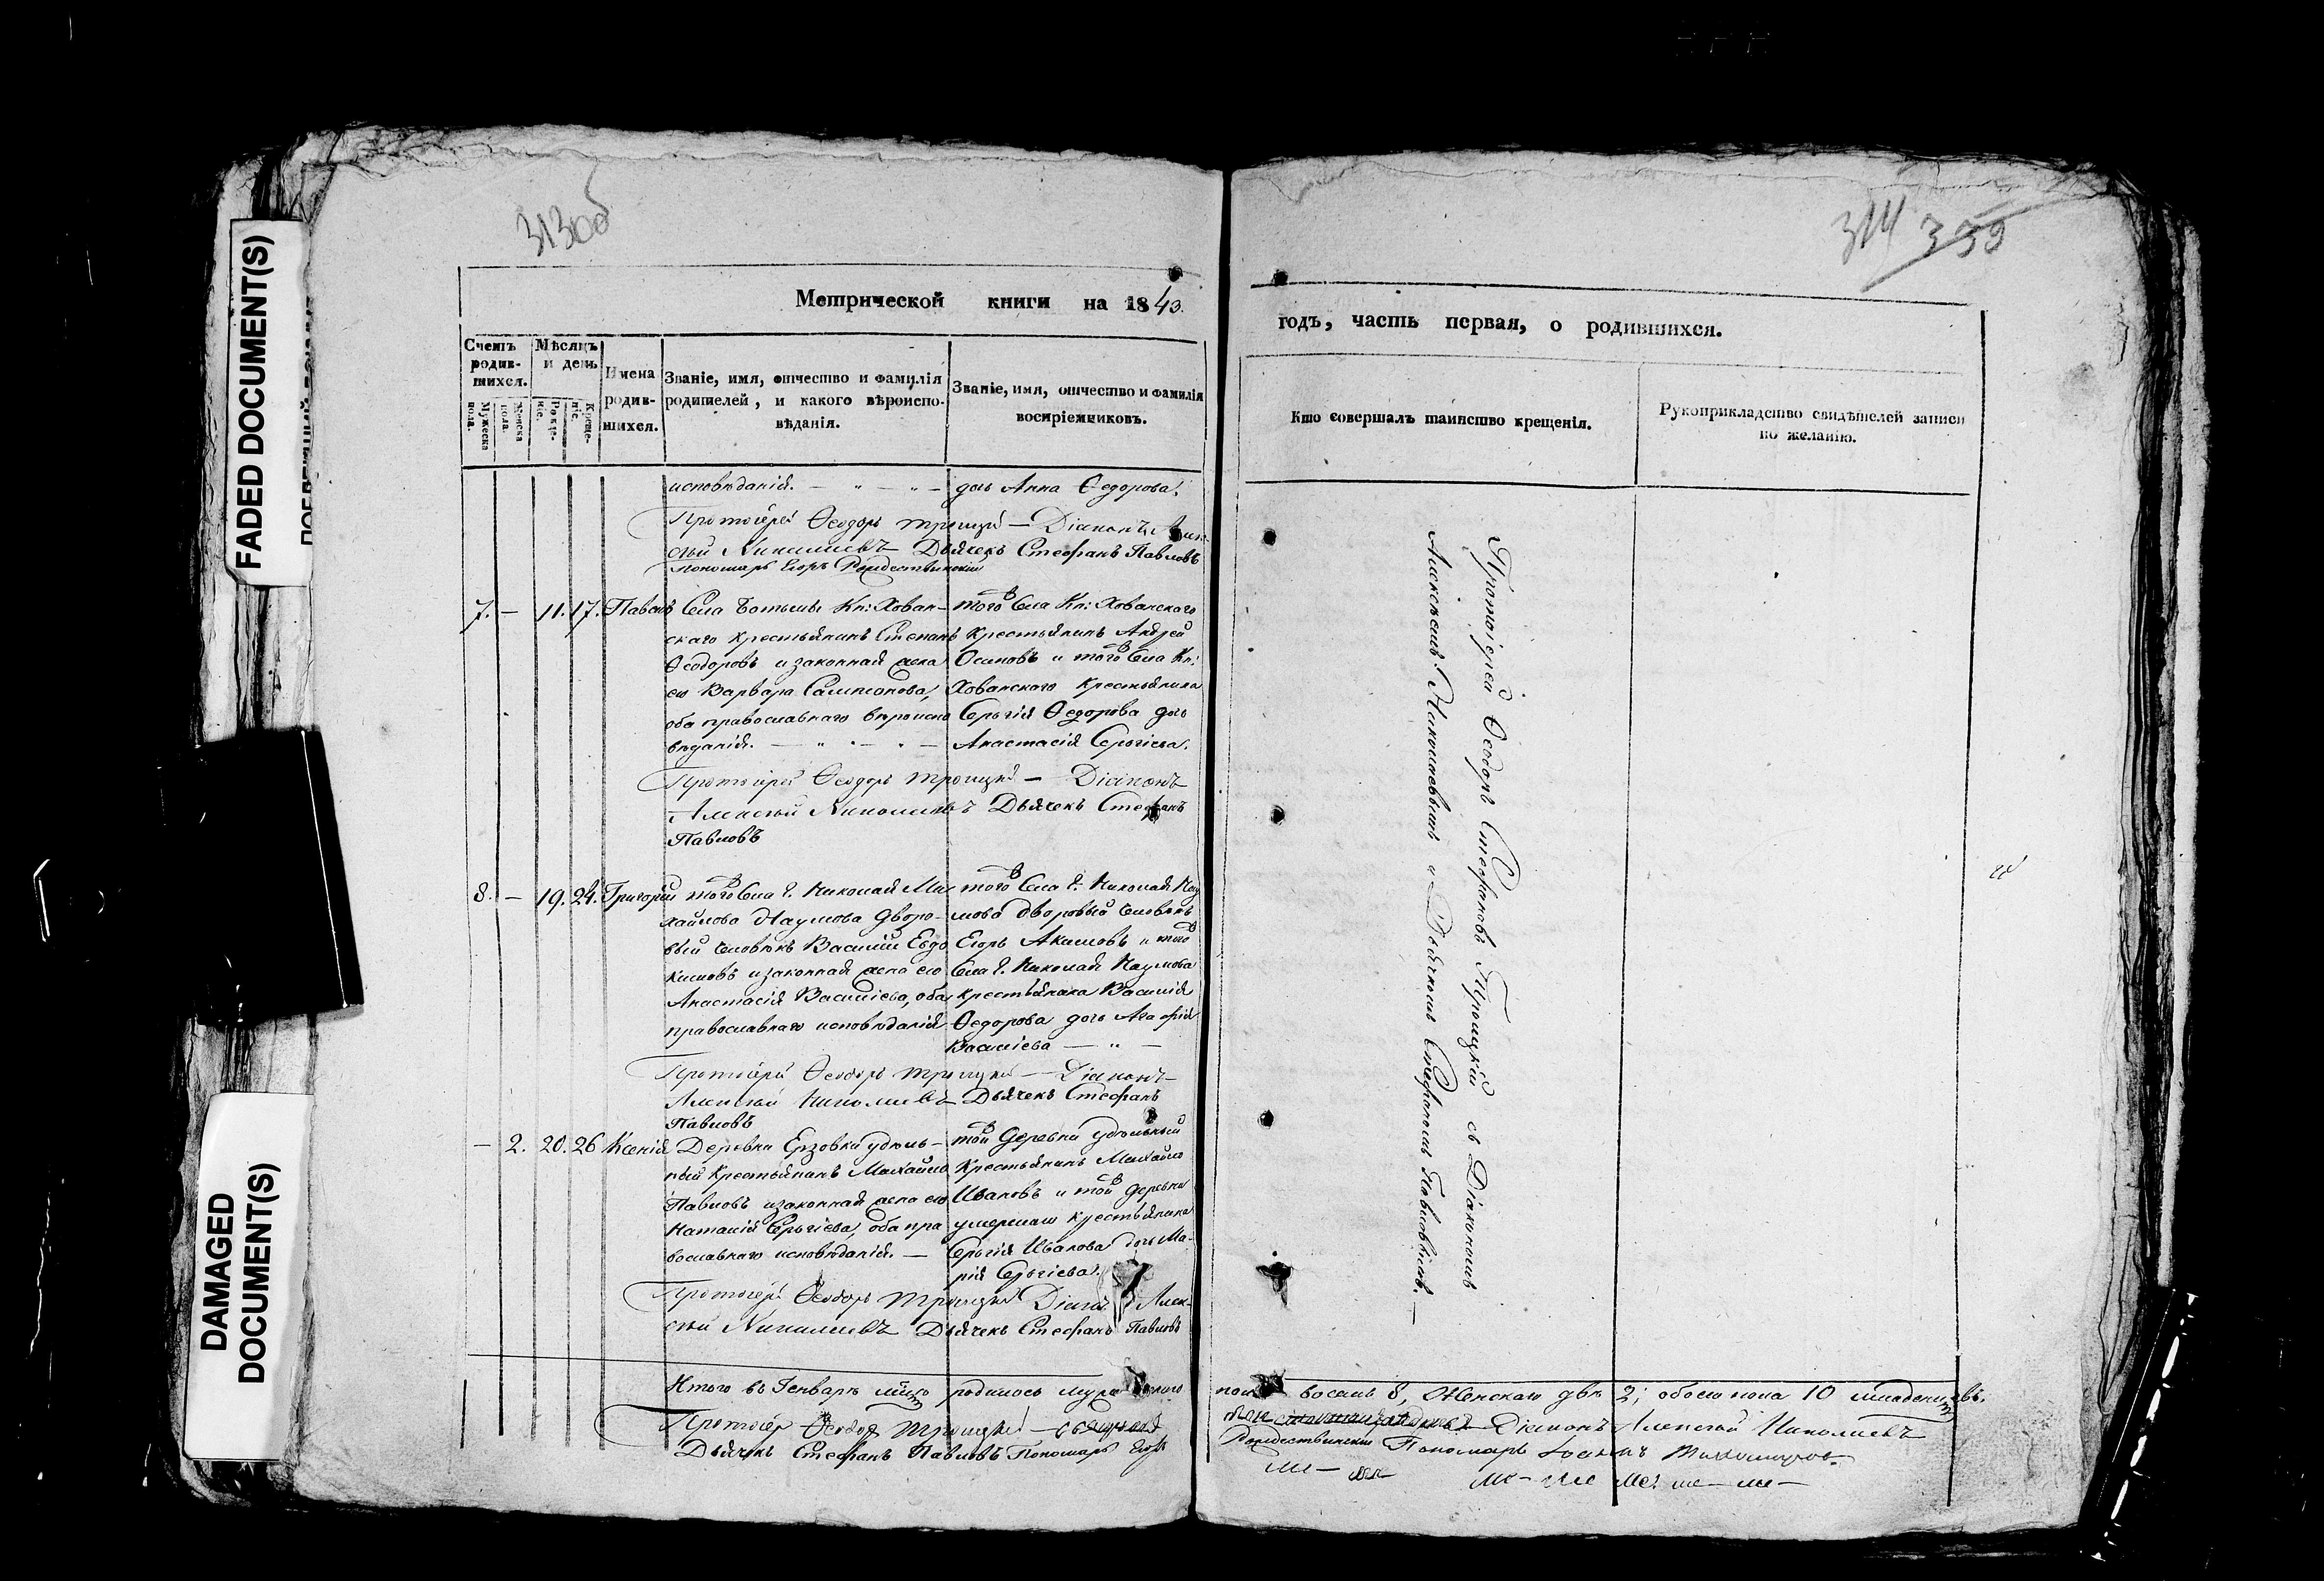 FAMED DOCUMENT(S)
DAMAGED
DOCUMENT(S)
313об
314 339
Метрической книги на 1843.
годъ, часть первая, о родившихся.
Счетъ родив-
шихся.
Мужеска пола.
Женска пола.
Мѣсяцъ
и день
Рожде-
ніе.
Креще-
ніе.
Имена
родив-
шихся.
Званіе, имя, отчество и фамилія
родителей, и какого вѣроиспо-
вѣданія.
Званіе, имя, отчество и фамилія
воспріемниковъ.
Кто совершалъ таинство крещенія.
Рукоприкладство свидѣтелей записи
по желанію.
исповѣданія.
дочь Анна Ѳедорова.
Протоіерей Ѳеодоръ Троицкій — Діаконъ Алек-
сѣй Николаевъ Дьячекъ Стефанъ Павловъ
Пономарь Егоръ Рождественскій
7. — 11. 17. Павелъ
Села Ботьмы Кн: Хован-
скаго крестьянинъ Степанъ
Ѳеодоровъ и законная жена
его Варвара Сампсонова,
оба православнаго вѣроиспо
вѣданія.
того Села Кн: Хованскаго
крестьянинъ Андрей
Осиповъ и того Села Кн:
Хованскаго крестьянина
Сергія Ѳедорова дочь
Анастасія Сергіева.
Протоіерей Ѳеодоръ Троицкій — Діаконъ
Алексѣй Николаевъ Дьячекъ Стефанъ
Павловъ
8. — 19. 24. Григорій
того Села Г. Николая Ми
хайлова Наумова дворо-
вый человѣкъ Василій Евдо
кимовъ и законная жена его
Анастасія Васильева, оба
православнаго исповѣданія
того Села Г. Николая Нау
мова дворовый человѣкъ
Егоръ Акимовъ и того
Села Г. Николая Наумова
крестьянина Василія
Ѳедорова дочь Агафія
Васильева
Протоіерей Ѳеодоръ Троицкій — Діаконъ
Алексѣй Николаевъ Дьячекъ Стефанъ
Павловъ
— 2. 20. 26 Ксенія
Деревни Ерзовки удѣль-
ный крестьянинъ Михайло
Павловъ и законная жена его
Наталія Сергіева, оба пра
вославнаго исповѣданія. —
той деревни удѣльный
крестьянинъ Михайло
Ивановъ и той деревни
умершаго крестьянина
Сергія Иванова дочь Ма-
рія Сергіева.
Протоіерей Ѳеодоръ Троицкій Діаконъ Алек-
сѣй Николаевъ Дьячекъ Стефанъ Павловъ
Протоіерей Ѳеодоръ Стефановъ Троицкій съ Діакономъ
Алексѣемъ Николаевымъ и Дьячкомъ Стефаномъ Павловымъ. —
Итого въ Генварѣ мѣсяцѣ родилось мужескаго
пола восемь 8, женскаго двѣ 2; обоего пола 10 младенцевъ.
Протоіерей Ѳеодоръ Троицкій
Діаконъ Алексѣй Николаевъ
Дьячекъ Стефанъ Павловъ Пономарь Егоръ
Рождественскій Пономарь Іоаннъ